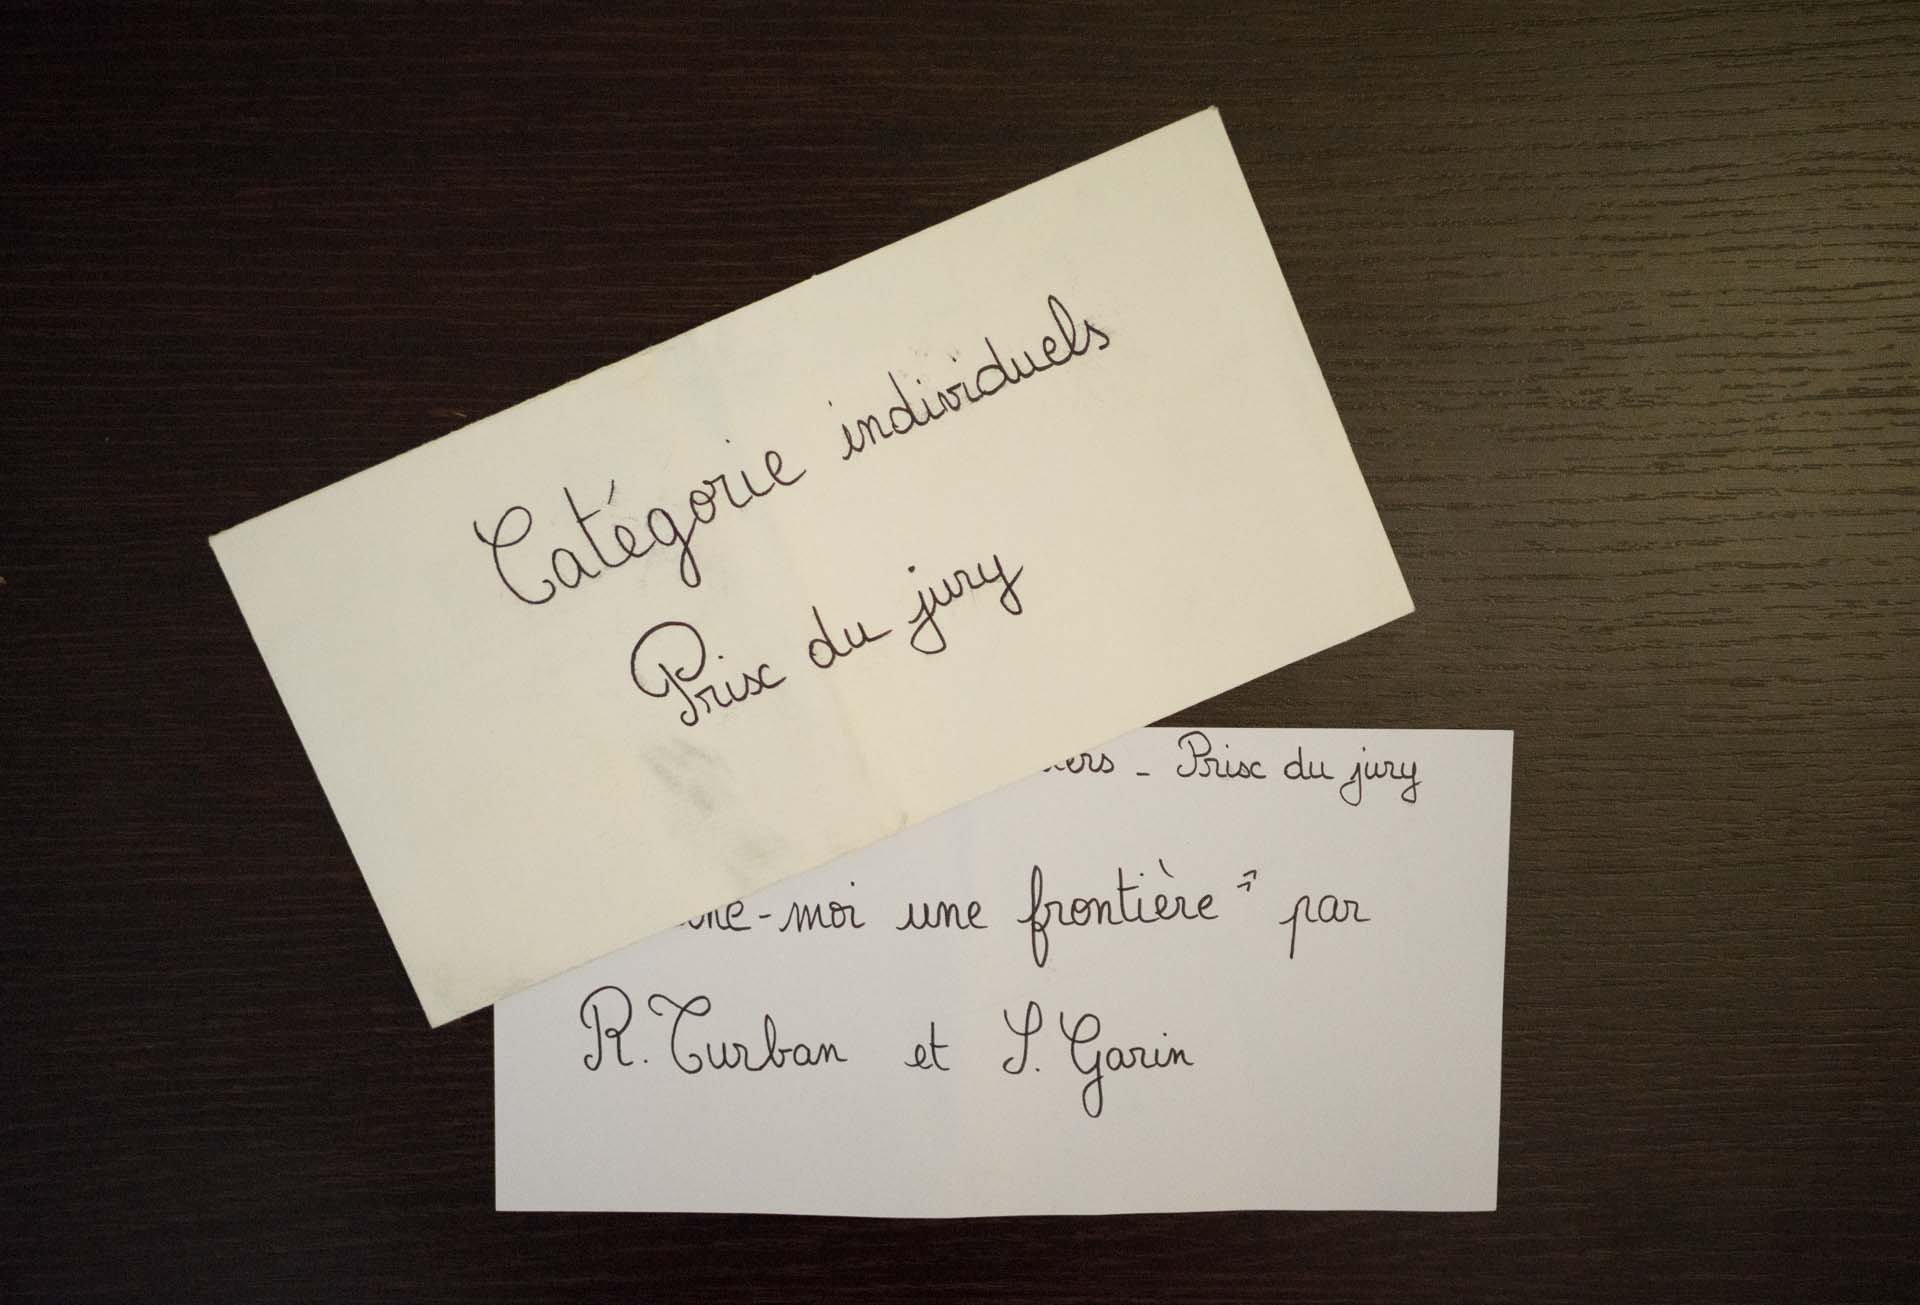 Catégorie individuels
Prix du jury
- Prix du jury
-moi une frontière » par
R. Turban et S. Garin